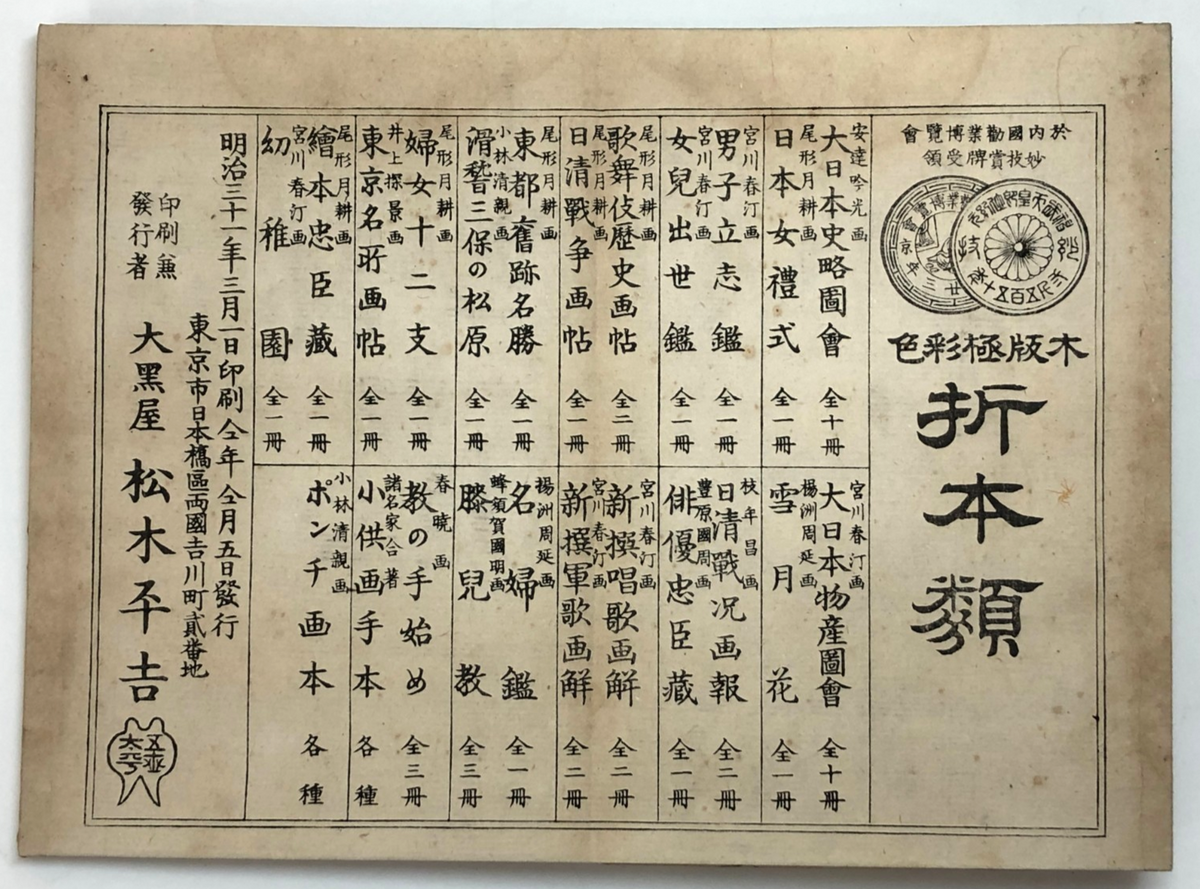 於内國勸業博覽會
妙技賞牌受領
木版極彩色
折本類
安達吟光画
大日本史略圖會 全十冊
尾形月耕画
日本女禮式 全一冊
宮川春汀画
男子立志鑑 全一冊
宮川春汀画
女兒出世鑑 全一冊
尾形月耕画
歌舞伎歷史画帖 全二冊
尾形月耕画
日清戰争画帖 全一冊
尾形月耕画
東都舊跡名勝 全一冊
小林清親画
滑稽三保の松原 全一冊
尾形月耕画
婦女十二支 全一冊
井上探景画
東京名所画帖 全一冊
尾形月耕画
繪本忠臣藏 全一冊
宮川春汀画
幼稚園 全一冊
宮川春汀画
大日本物産圖會 全十冊
楊洲周延画
雪月花 全一冊
枝年昌画
日清戰况画報 全二冊
豊原國周画
俳優忠臣藏 全一冊
宮川春汀画
新撰唱歌画解 全二冊
宮川春汀画
新撰軍歌画解 全二冊
楊洲周延画
名婦鑑 全一冊
蜂須賀國明画
膝兒教 全三冊
春暁画
教の手始め 全三冊
諸名家合著
小供画手本 各種
小林清親画
ポンチ画本 各種
明治三十一年三月一日印刷仝年仝月五日發行
東京市日本橋區両國吉川町貳番地
印刷兼
發行者
大黑屋 松木平吉